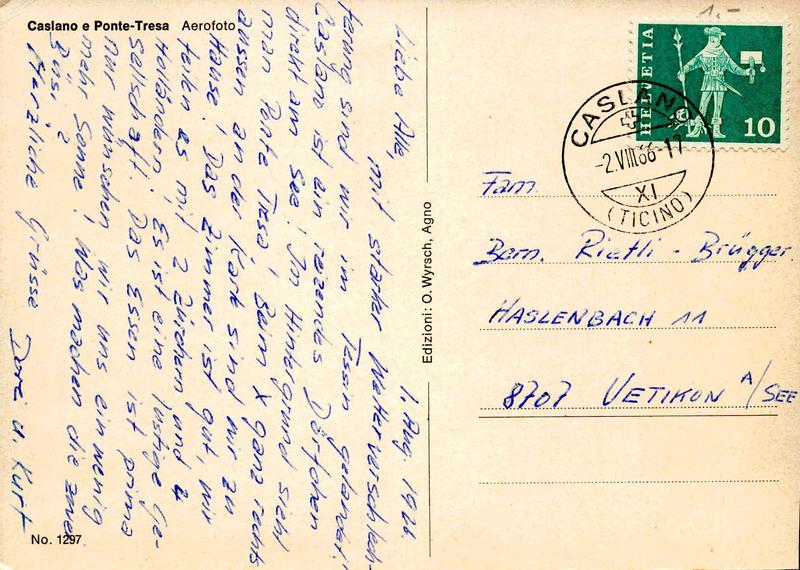 Caslano e Ponte-Tresa Aerofoto
1. Aug. 1966.
Liebe Alle,
mit starker Wetterverschlech-
terung sind wir im Tessin gelandet!
Caslano ist ein reizendes Dörfchen
direkt am See! Im Hintergrund sieht
man Ponte Tresa! Beim X ganz rechts
aussen an der Karte sind wir zu
Hause! Das Zimmer ist gut, wir
teilen es mit 2 Zürchern und 4
Holländern! Es ist eine lustige Ge-
sellschaft! Das Essen ist prima
nur wünschen wir uns ein wenig
mehr Sonne! Was machen die zwei
Büsi?
Herzliche Grüsse
Dora u. Kurt
No. 1297
Edizioni: O. Wyrsch, Agno
1.-
HELVETIA
10
CASLANO
-2.VIII.66-17
XI
(TICINO)
Fam.
Bern. Rietli - Brügger
HASLENBACH 11
8707 UETIKON A/SEE